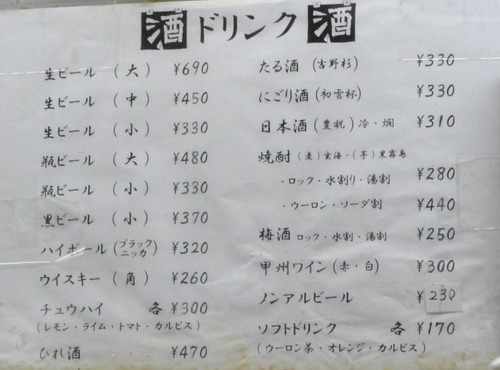 酒 ドリンク 酒
生ビール (大) ¥690
生ビール (中) ¥450
生ビール (小) ¥330
瓶ビール (大) ¥480
瓶ビール (小) ¥330
黒ビール (小) ¥370
ハイボール (ブラックニッカ) ¥320
ウイスキー (角) ¥260
チュウハイ 各 ¥300
(レモン・ライム・トマト・カルピス)
ひれ酒 ¥470
たる酒 (吉野杉) ¥330
にごり酒 (初雪杯) ¥330
日本酒 (豊祝) 冷・燗 ¥310
焼酎 (麦)玄海・(芋)黒霧島
・ロック・水割り・湯割 ¥280
・ウーロン・ソーダ割 ¥440
梅酒 ロック・水割・湯割 ¥250
甲州ワイン (赤・白) ¥300
ノンアルビール ¥230
ソフトドリンク 各 ¥170
(ウーロン茶・オレンジ・カルピス)